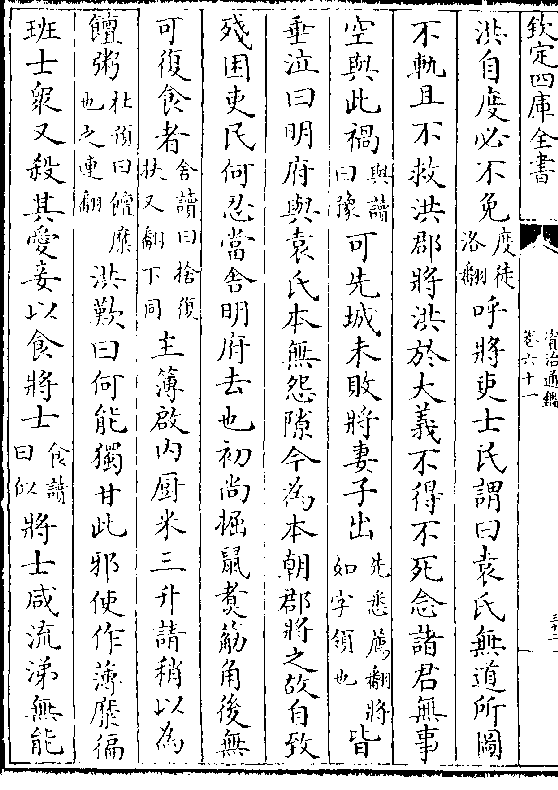 欽定四庫全書
資治通鑑
卷六十一
洪自度必不免度徒洛翻呼將吏士民謂曰袁氏無道所圖
不軌且不救洪郡將洪於大義不得不死念諸君無事
空與此禍與讀曰豫可先城未敗將妻子出先悉薦翻將如字領也皆
垂泣曰明府與袁氏本無怨隙今為本朝郡將之故自致
殘困吏民何忍當舍明府去也初尚掘鼠煑筋角後無
可復食者舍讀曰捨復扶又翻下同主簿啟內厨米三升請稍以為
饘粥杜預曰饘糜也之連翻洪歎曰何能獨甘此邪使作薄糜徧
班士衆又殺其愛妾以食將士食讀曰飤將士咸流涕無能